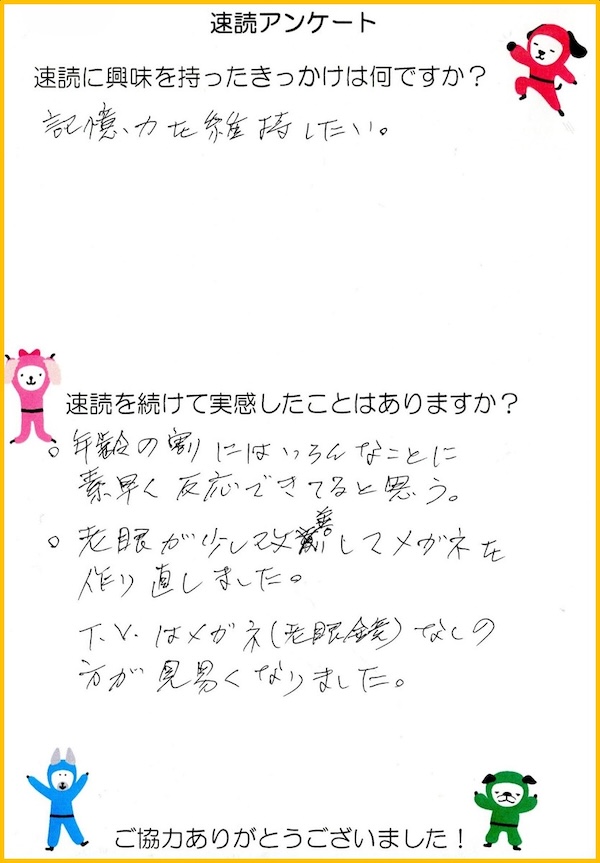 速読アンケート
速読に興味を持ったきっかけは何ですか？
記憶力を維持したい。
速読を続けて実感したことはありますか？
○年齢の割にはいろんなことに
素早く反応できてると思う。
○老眼が少し改善してメガネを
作り直しました。
T.V.はメガネ(老眼鏡)なしの
方が見易くなりました。
ご協力ありがとうございました！